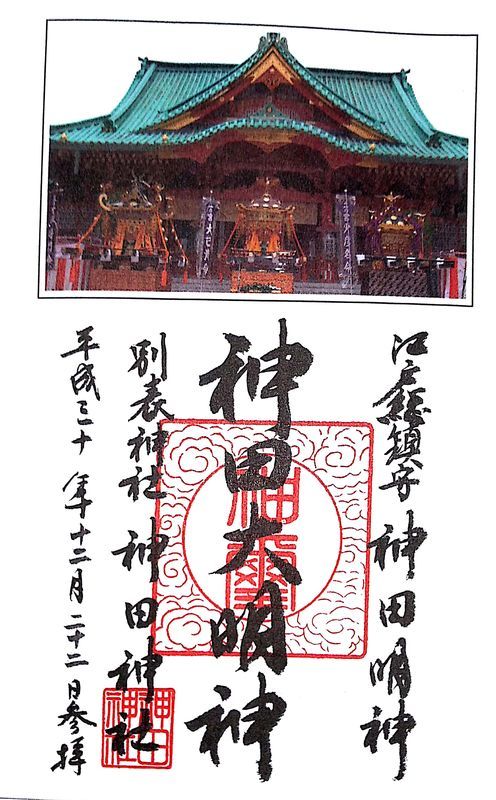 江戸總鎮守 神田明神
神田大明神
別表神社 神田神社
平成三十年十二月二十二日参拝
神璽
神田
神社